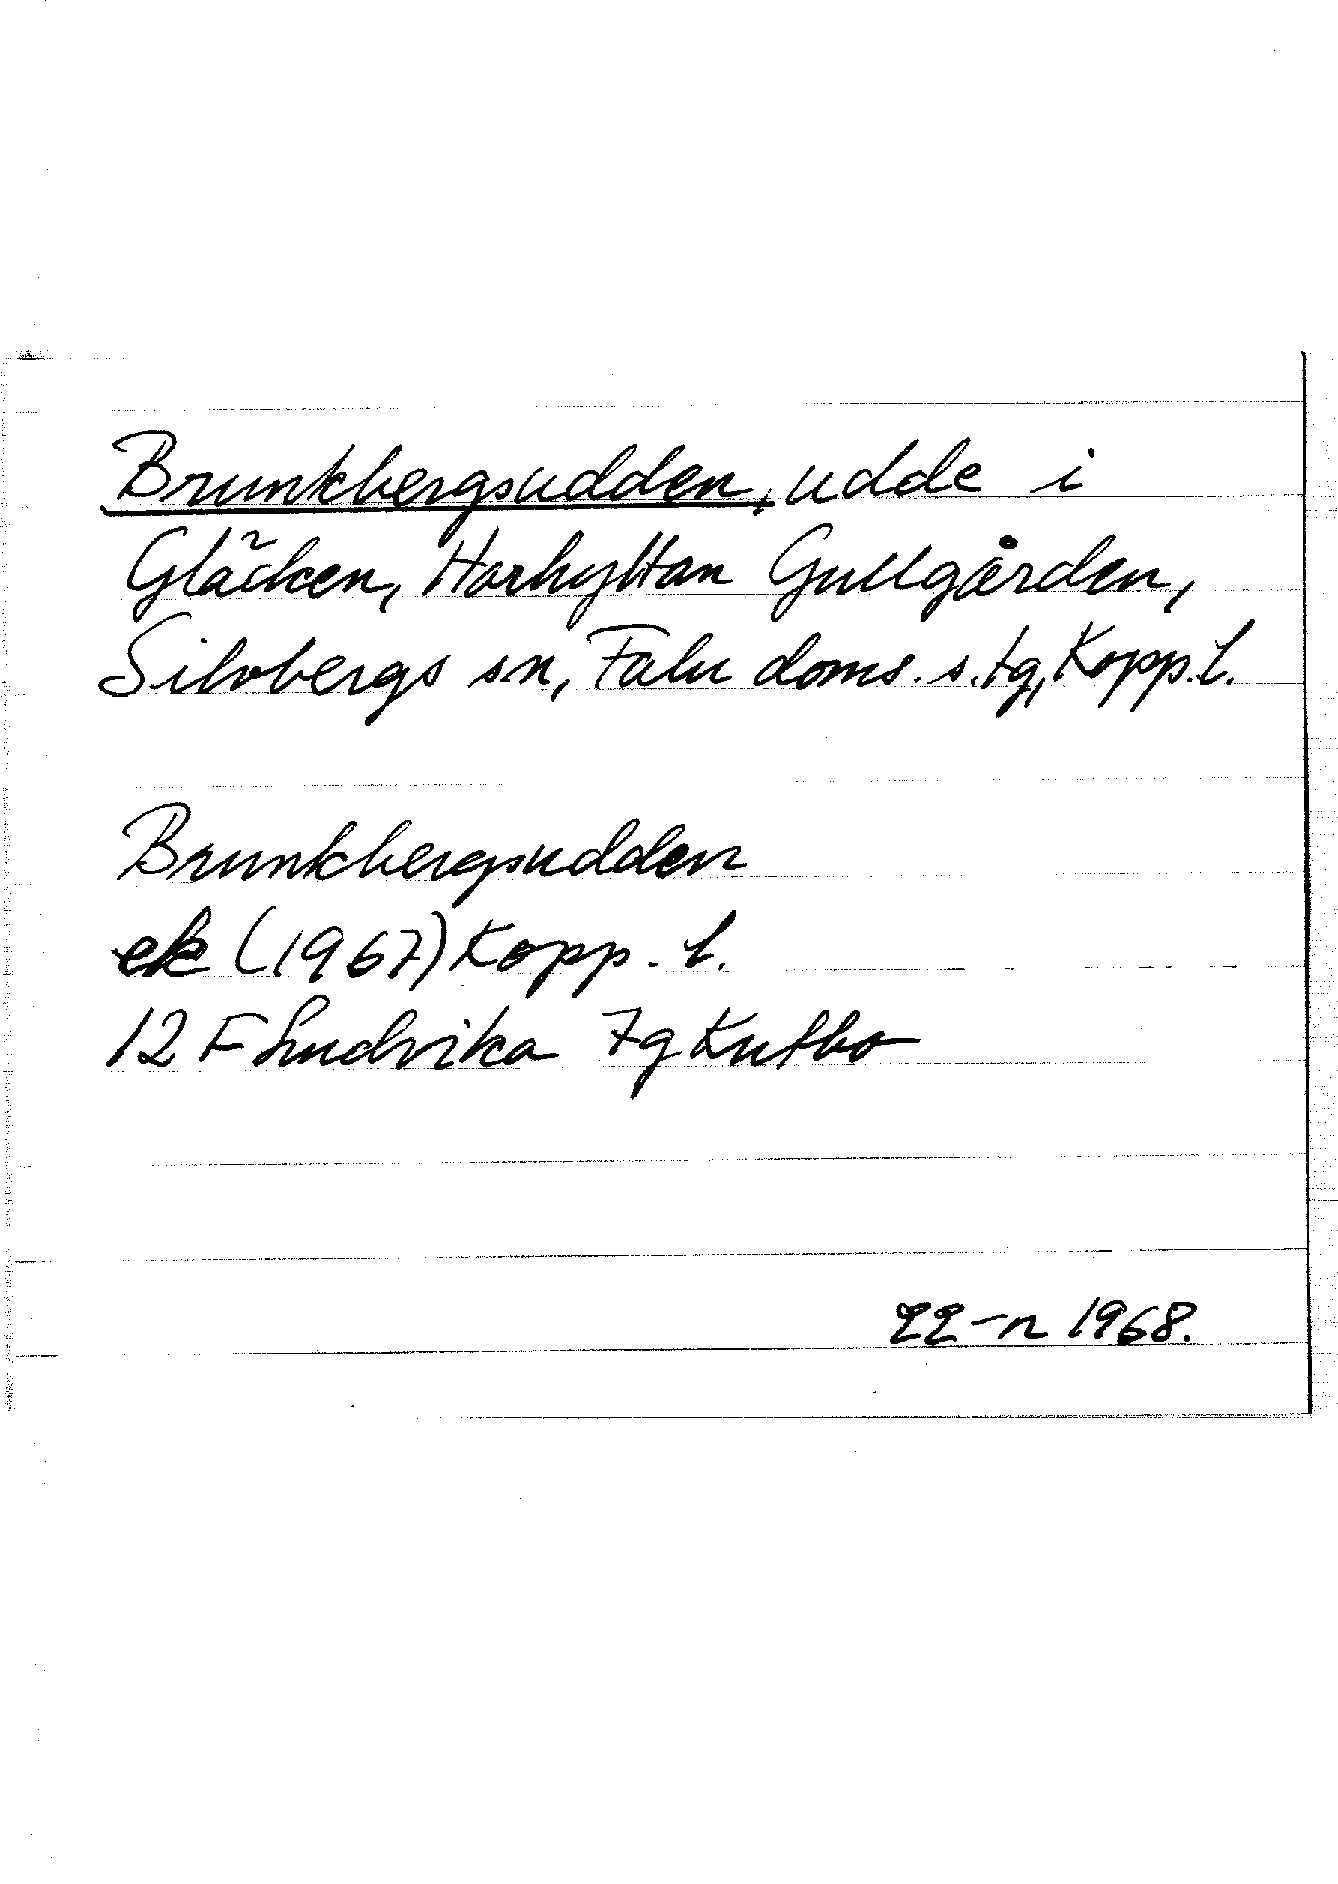 Brunkbergsudden, udde i
Gläcken, Harhyttan Gullgården,
Silvbergs sn, Falu doms. s. tg, Kopp. l.
Brunkbergsudden
ek (1967) Kopp. l.
12 F Ludvika 7g Kutbo
1968.